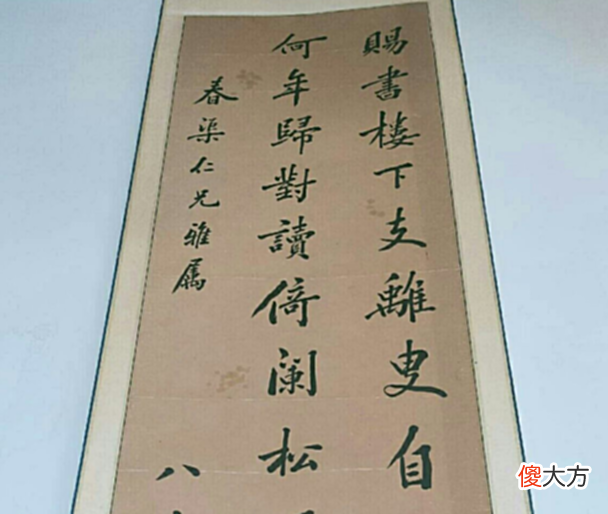 賜書楼下支離叟自
何年歸對讀倚闌松
春渠仁兄雅属
八
傻大方